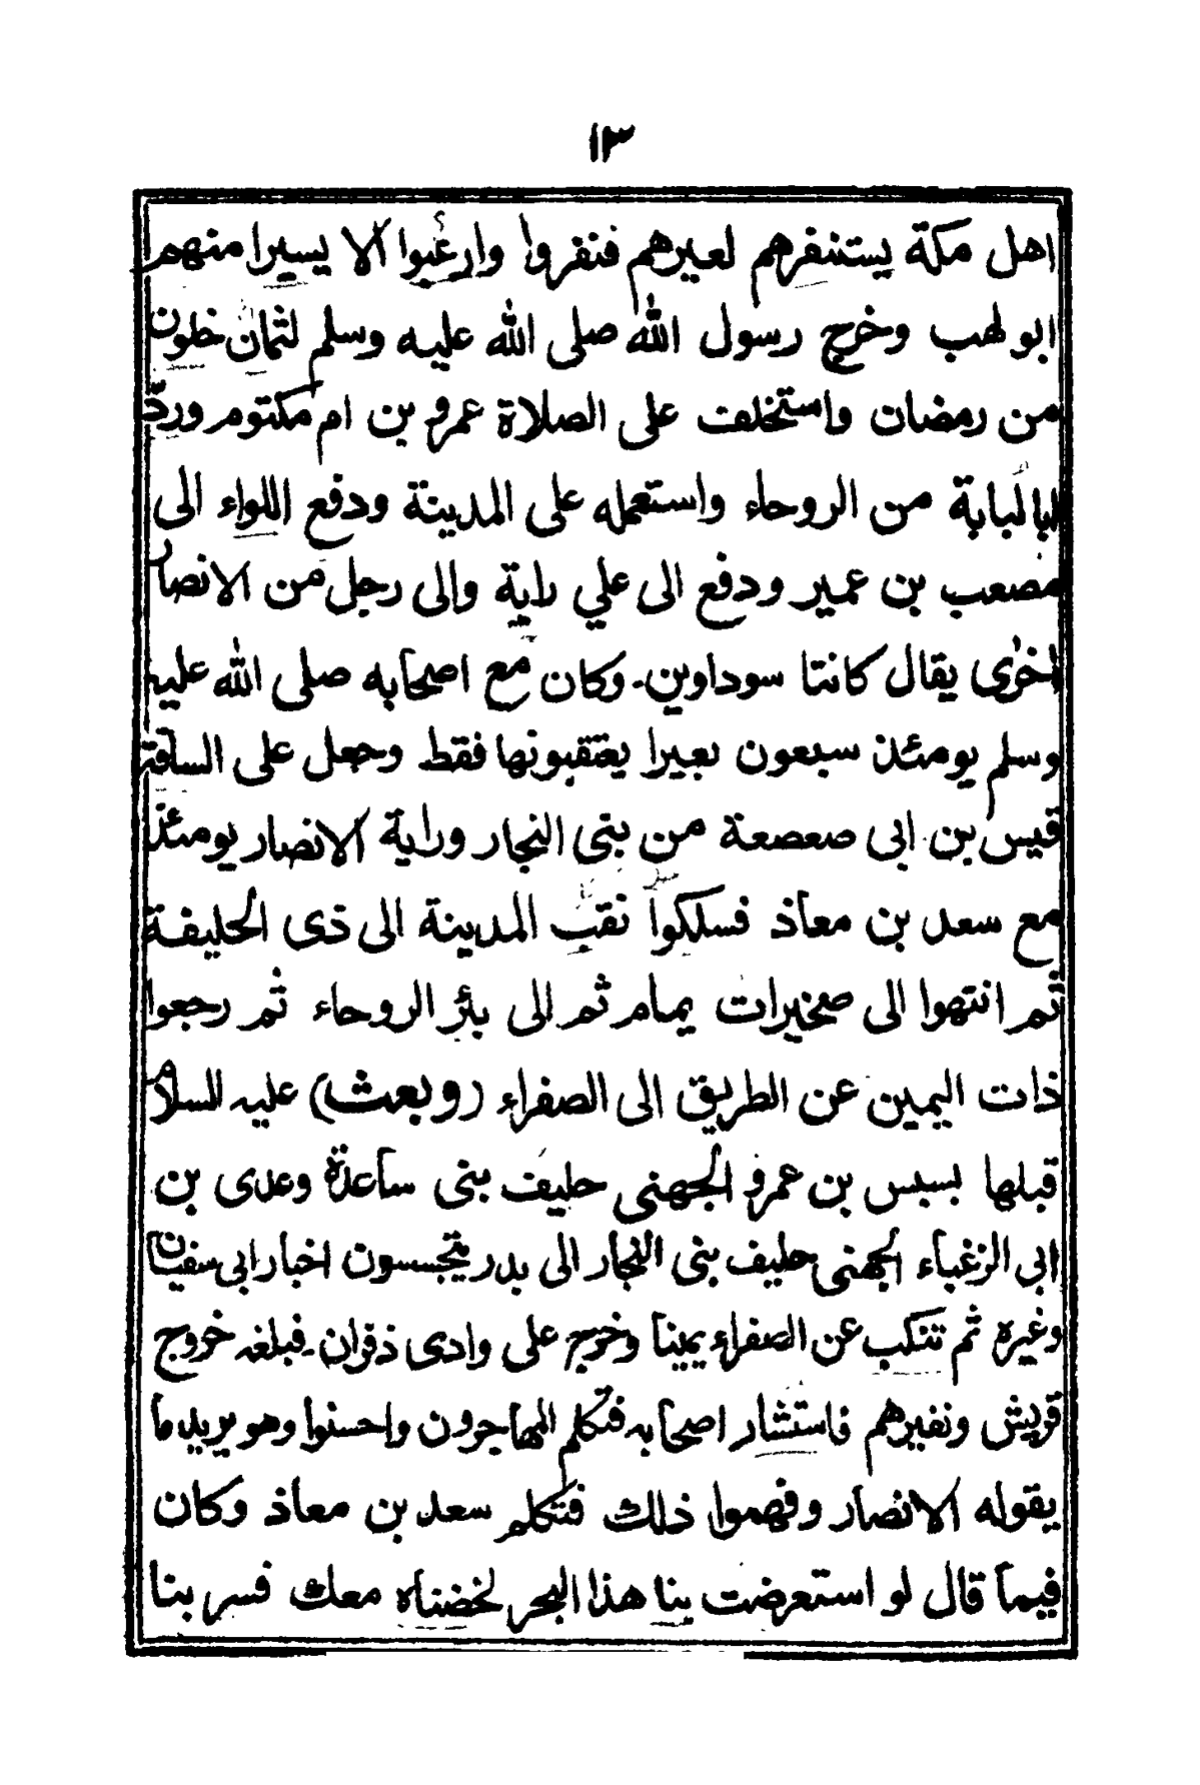 ١٣
اهل مكة يستنفرهم لعيرهم فنفروا وارغبوا الا يسيرا منهم
ابو لهب وخرج رسول الله صلى الله عليه وسلم لثمان خلون
من رمضان واستخلف على الصلاة عمرو بن ام مكتوم وردّ
ابا لبابة من الروحاء واستعمله على المدينة ودفع اللواء الى
مصعب بن عمير ودفع الى علي راية والى رجل من الانصار
اخرى يقال كانتا سوداوين. وكان مع اصحابه صلى الله عليه
وسلم يومئذ سبعون بعيرا يعتقبونها فقط وجعل على الساقة
قيس بن ابى صعصعة من بنى النجار وراية الانصار يومئذ
مع سعد بن معاذ فسلكوا نقب المدينة الى ذى الحليفة
ثم انتهوا الى صخيرات يمام ثم الى بئر الروحاء ثم رجعوا
ذات اليمين عن الطريق الى الصفراء (وبعث) عليه السلام
قبلها بسبس بن عمرو الجهنى حليف بنى ساعدة وعدى بن
ابى الزغباء الجهنى حليف بنى النجار الى بدر يتجسسون اخبار ابى سفيان
وغيره ثم تنكب عن الصفراء يمينا وخرج على وادى ذفران. فبلغه خروج
قريش ونفيرهم فاستشار اصحابه فتكلم المهاجرون واحسنوا وهو يريد ما
يقوله الانصار وفهموا ذلك فتكلم سعد بن معاذ وكان
فيما قال لو استعرضت بنا هذا البحر لخضناه معك فسر بنا